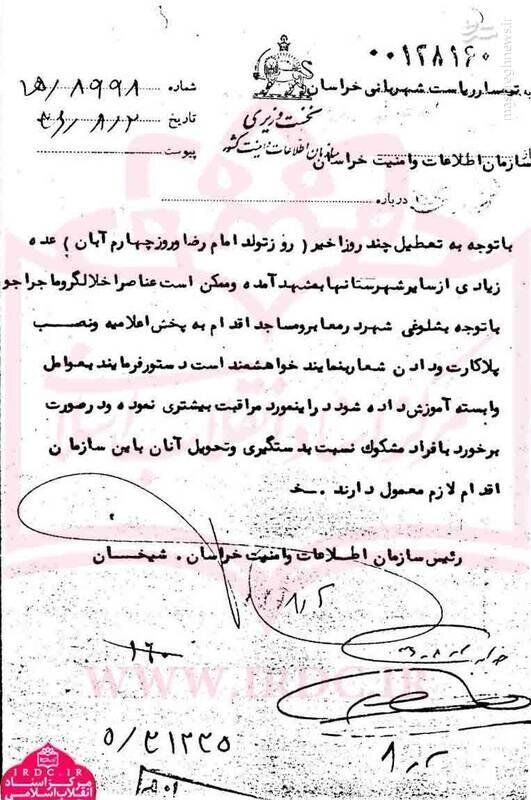 ۰۰۱۳۸۱۶۰
ریاست شهربانی خراسان
شماره ۸۹۹۸/ﻫ۱
نخست وزیری
تاریخ
سازمان اطلاعات و امنیت کشور
پیوست
سازمان اطلاعات وامنیت خراسان
درباره
باتوجه به تعطیل چند روز اخیر ( روز تولد امام رضا وروز چهارم آبان ) عده
زیادی از سایر شهرستانها بمشهد آمده وممکن است عناصر اخلالگر وماجراجو
باتوجه بشلوغی شهر در معابر ومساجد اقدام به پخش اعلامیه ونصب
پلاکارت ودادن شعار بنمایند خواهشمند است دستور فرمایند بعوامل
وابسته آموزش داده شود در اینمورد مراقبت بیشتری نموده ودر صورت
برخورد با افراد مشکوک نسبت بدستگیری وتحویل آنان باین سازمان
اقدام لازم معمول دارند .
رئیس سازمان اطلاعات وامنیت خراسان . شیخان
۱۶۰
WWW.IRDC.IR
۵/۳۱۲۲۵
IRDC.IR
مرکز اسناد
انقلاب اسلامی
mashreghnews.ir